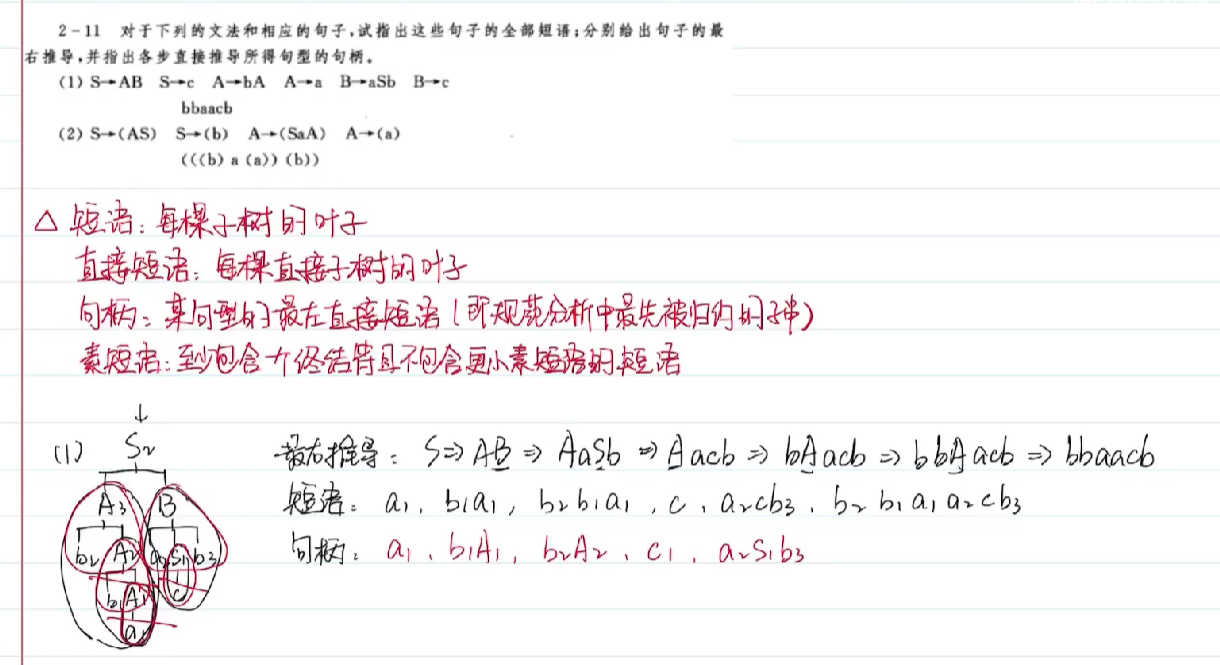 2-11 对于下列的文法和相应的句子,试指出这些句子的全部短语;分别给出句子的最
右推导,并指出各步直接推导所得句型的句柄。
(1) S→AB S→c A→bA A→a B→aSb B→c
bbaacb
(2) S→(AS) S→(b) A→(SaA) A→(a)
(((b) a (a)) (b))
△ 短语: 每棵子树的叶子
直接短语: 每棵直接子树的叶子
句柄: 某句型的最左直接短语(即规范分析中最先被归约的子串)
素短语: 至少包含一个终结符且不包含更小素短语的短语
↓
(1) S₂
最右推导: S⇒AB⇒AaSb⇒Aacb⇒bAacb⇒bbAacb⇒bbaacb
A₃ B
短语: a₁, b₁a₁, b₂b₁a₁, c, a₂cb₃, b₂b₁a₁a₂cb₃
b₂ A₂ a₂ S₁ b₃
句柄: a₁, b₁A₁, b₂A₂, c₁, a₂S₁b₃
b₁ A₁ c
a₁